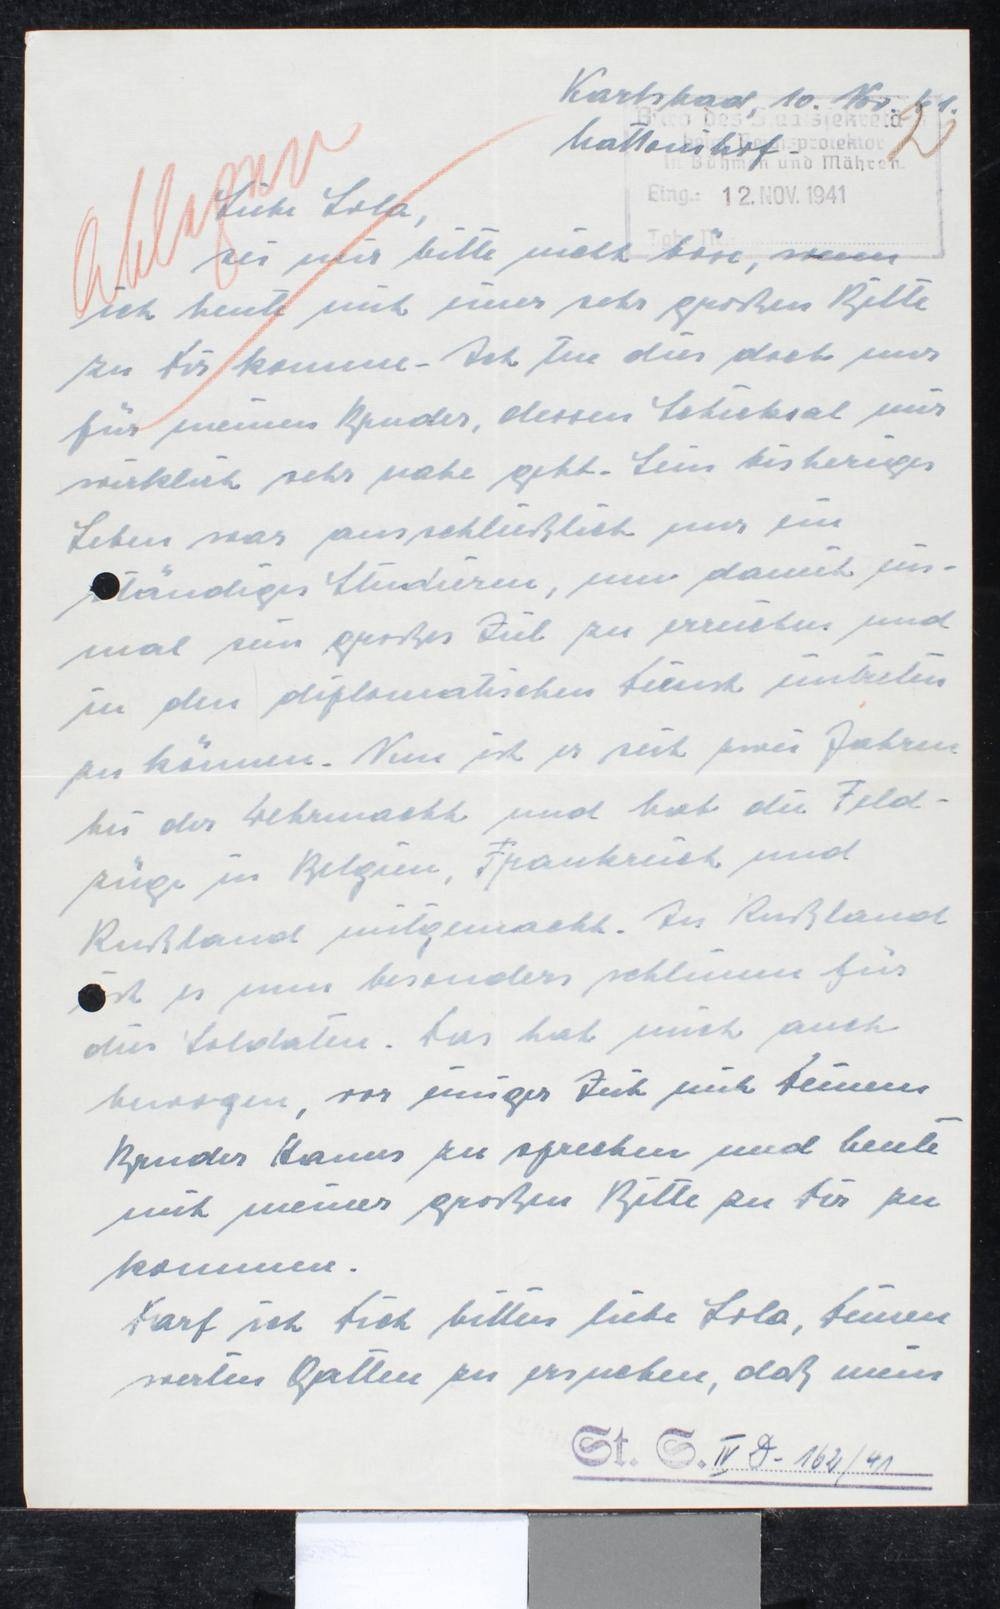 Karlsbad, 10. Nov. 41.
Mattonihof -
Büro des Staatssekretä
beim Reichsprotektor
in Böhmen und Mähren.
Eing.: 12. NOV. 1941
Tgb. Nr.
20
Ablegen
Liebe Lola,
sei mir bitte nicht böse, wenn
ich heute mit einer sehr großen Bitte
zu Dir komme - Ich tue dies doch nur
für meinen Bruder, dessen Schicksal mir
wirklich sehr nahe geht. Sein bisheriges
Leben war ausschließlich nur ein
ständiges Studieren, um damit ein-
mal sein großes Ziel zu erreichen und
in den diplomatischen Dienst eintreten
zu können. Nun ist er seit zwei Jahren
bei der Wehrmacht und hat die Feld-
züge in Belgien, Frankreich und
Rußland mitgemacht. In Rußland
ist es nun besonders schlimm für
die Soldaten. Das hat mich auch
bewogen, vor einiger Zeit mit Deinem
Bruder Hanns zu sprechen und heute
mit meiner großen Bitte zu Dir zu
kommen.
Darf ich Dich bitten liebe Lola, Deinen
werten Gatten zu ersuchen, daß mein
St. S. IV D - 162/41